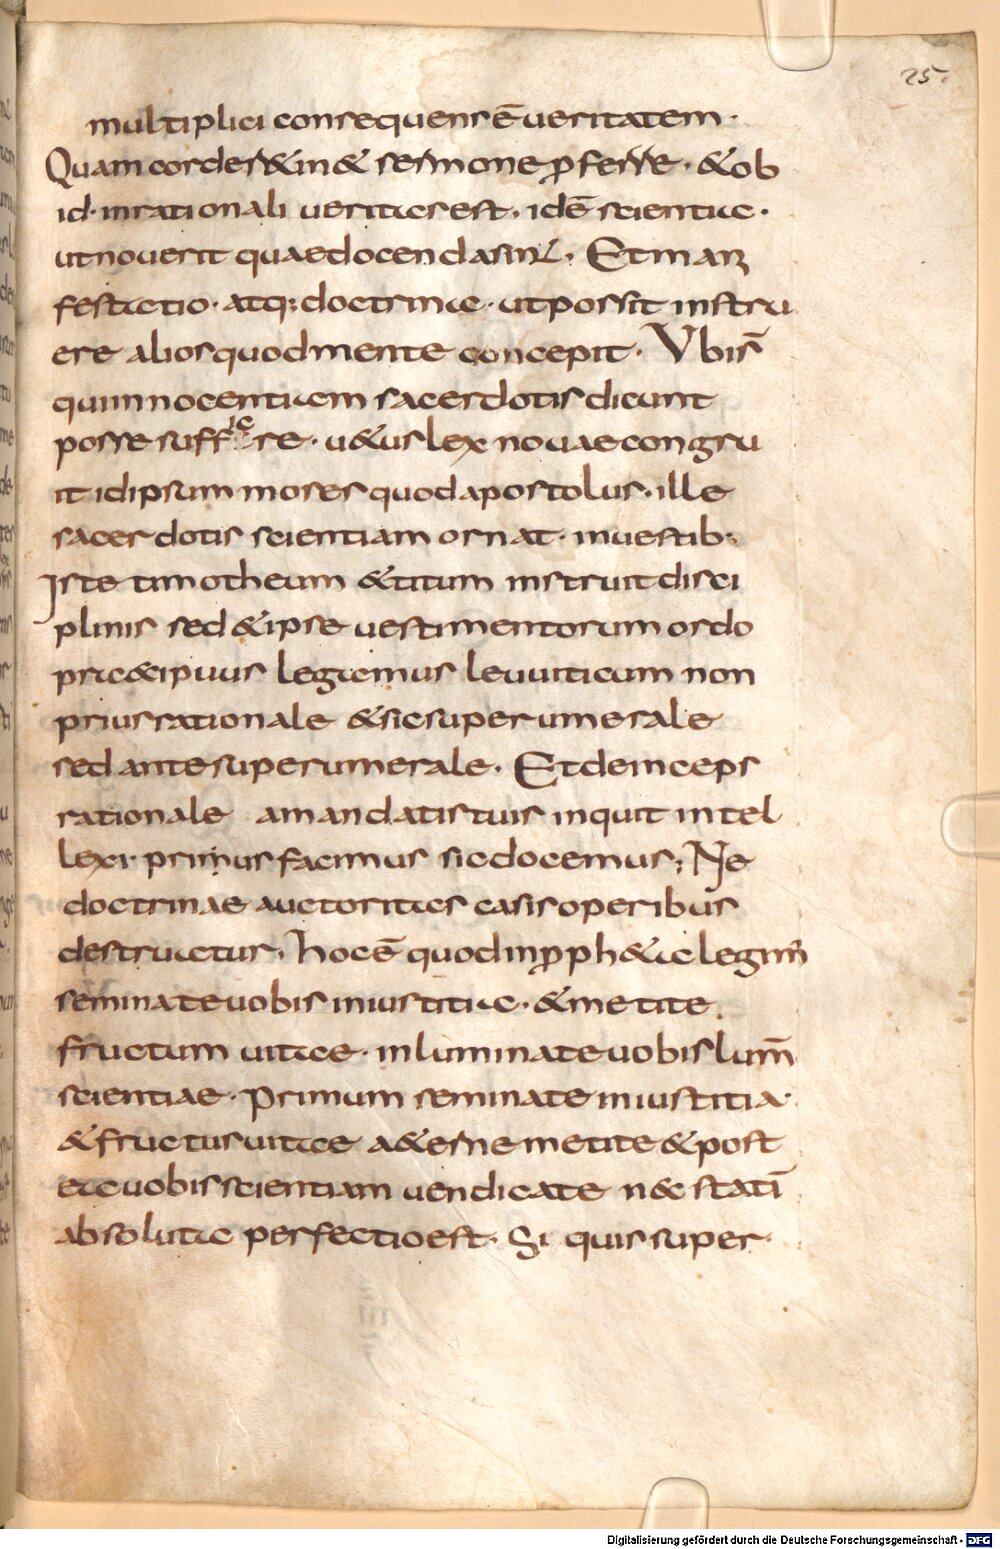 25.
multiplici consequens ē ueritatem·
Quam corde ser&in& sermone ꝓferre· &ob
id· inrationali ueritas est, idē scientia·
ut nouerit quae docenda sint, Et mani
festatio· atq; doctrina· ut possit instru
ere alios quod mente concepit· Vbi s̄
qui innocentiam sacerdotis dicunt
posse sufficere· u&us lex nouae congru
it id ipsum moses quod apostolus· ille
sacerdotis scientiam ornat· in uestib;
Iste timotheum &titum instruit disci
plinis sed &ipse uestimentorum ordo
praecipuus legamus leuuiticum non
prius rationale &sic superumerale
sed ante superumerale· Et deinceps
rationale a mandatis tuis inquit intel
lexi· primus facimus sic docemus; Ne
doctrinae auctoritas casis operibus
destruatur, hoc ē quod in ꝓph&a legim̄
seminate uobis in iustitia· &metite
fructum uitae· inluminate uobis lum̄
scientiae· Primum seminate in iustitia·
&fructus uitae a&erne metite &post
ea uobis scientiam uendicate nec statī
absoluta perfectio est· Si quis super·
Digitalisierung gefördert durch die Deutsche Forschungsgemeinschaft - DFG